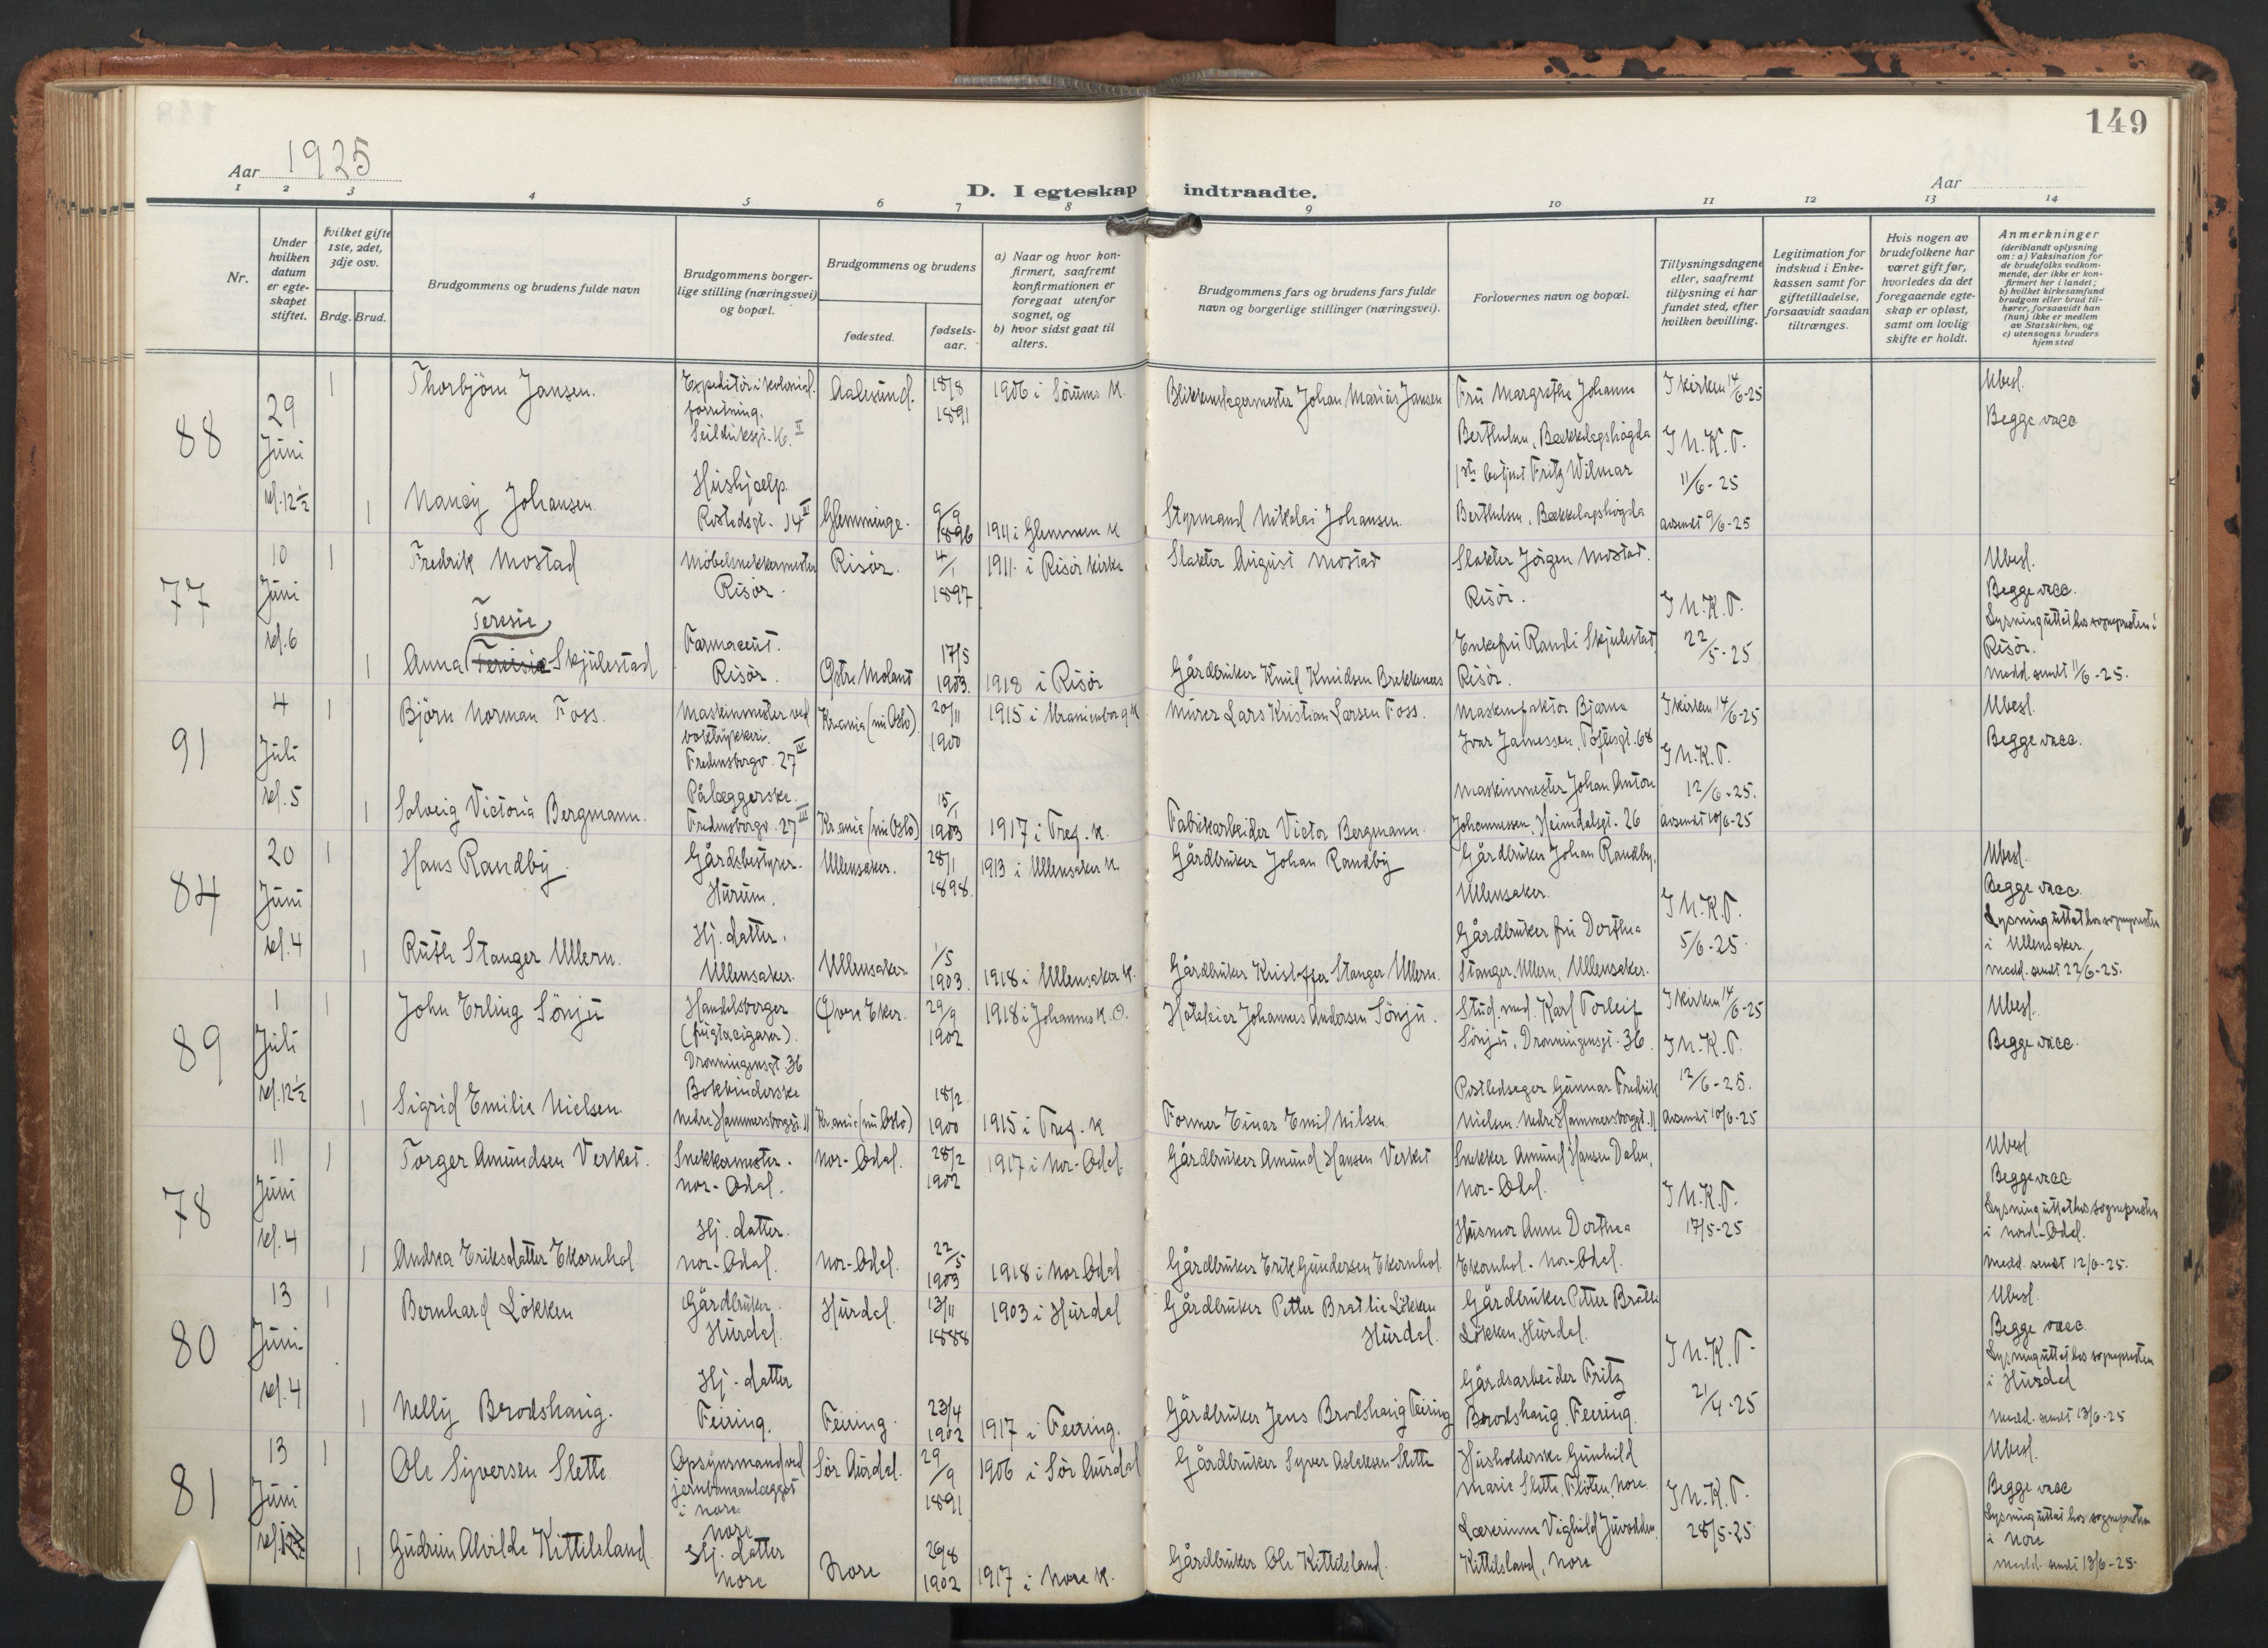 149
Aar 1925
D. I egteskap indtraadte.
Aar
1 2 3 4 5 6 7 8 9 10 11 12 13 14
Nr.
Under hvilken datum er egte-skapet stiftet.
Hvilket gifte 1ste, 2det, 3dje osv.
Brdg. Brud.
Brudgommens og brudens fulde navn
Brudgommens borger-lige stilling (næringsvei) og bopæl.
Brudgommens og brudens
fødested.
fødsels-aar.
a) Naar og hvor kon-firmert, saafremt konfirmationen er foregaat utenfor sognet, og
b) hvor sidst gaat til alters.
Brudgommens fars og brudens fars fulde navn og borgerlige stillinger (næringsvei).
Forlovernes navn og bopæl.
Tillysningsdagene eller, saafremt tillysning ei har fundet sted, efter hvilken bevilling.
Legitimation for indskud i Enke-kassen samt for giftetilladelse, forsaavidt saadan tiltrænges.
Hvis nogen av brudefolkene har været gift før, hvorledes da det foregaaende egte-skap er opløst, samt om lovlig skifte er holdt.
Anmerkninger
(deriblandt oplysning om: a) Vaksination for de brudefolks vedkom-mende, der ikke er kon-firmert her i landet;
b) hvilket kirkesamfund brudgom eller brud til-hører, forsaavidt han (hun) ikke er medlem av Statskirken, og
c) utensogns bruders hjemsted
88
29 Juni kl. 12 1/2
1 Thorbjörn Jansen.
Expeditör i kolonial.
forretning.
Seilduksgt. 16. II
Aalesund.
18/8 1891
1906 i Sörums K.
Blikkenslagermester Johan Marius Jansen
Fru Margrethe Johanne
Berthelsen, Bækkelagshögda
I kirken 14/6-25
I N.K.T.
11/6-25
avsendt 9/6-25
Ubesl.
Begge vacc
1 Nancy Johansen
Hushjælp.
Rostedsgt. 14 III
Glemminge.
9/9 1896
1911 i Glemmen K
Styrmand Nikolai Johansen.
1ste betjent Fritz Wilmar
Berthelsen, Bækkelagshögda
77
10 Juni kl. 6
1 Fredrik Mostad
Möbelsnekkermester
Risör.
Risör.
4/1 1897
1911 i Risör kirke
Slakter August Mostad
Slakter Jörgen Mostad.
Risör.
I N.K.T.
22/5-25
Ubesl.
Begge vacc.
Lysning uttat hos sognepresten i
Risör.
Medd. sendt 11/6-25.
Teresie
1 Anna Skjulestad
Farmaceut.
Risör.
Östre Moland
17/5 1903.
1918 i Risör
Gårdbruker Knud Knudsen Brekkenes
Enkefru Randi Skjulestad
Risör.
91
4 Juli kl. 5
1 Björn Norman Foss.
Maskinmester ved
boktrykkeri.
Fredensborgv. 27 IV
Kr.ania (nu Oslo)
20/11 1900
1915 i Uranienborg K
Murer Lars Kristian Larsen Foss.
Maskinfaktor Bjarne
Ivar Jamessen, Toftesgt. 68
I kirken 14/6-25
I N.K.T.
12/6-25.
avsendt 10/6-25
Ubesl.
Begge vacc.
1 Solveig Victoria Bergmann.
Pålæggerske.
Fredensborgv. 27 III
Kr.ania (nu Oslo)
15/1 1903
1917 i Tref. K.
Fabrikarbeider Victor Bergmann
Maskinmester Johan Anton
Johannessen, Heimdalsgt. 26
84
20 Juni kl. 4
1 Hans Randby
Gårdsbestyrer.
Hurum.
Ullensaker.
28/1 1898.
1913 i Ullensaker K.
Gårdbruker Johan Randby
Gårdbruker Johan Randby,
Ullensaker.
I N.K.T.
5/6-25.
Ubesl.
Begge vacc.
Lysning uttat hos sognepresten
i Ullensaker.
medd. sendt 22/6-25.
1 Ruth Stanger Ullern.
Hj. datter.
Ullensaker.
Ullensaker.
1/5 1903.
1918 i Ullensaker K.
Gårdbruker Kristoffer Stanger Ullern.
Gårdbruker fru Dorthea
Stanger Ullern, Ullensaker.
89
1 Juli kl. 12 1/2
1 John Erling Sönju
Handelsborger
(frugt & cigarer).
Dronningensgt. 36
Övre Eker.
29/9 1902
1918 i Johannes K. O.
Hoteleier Johannes Andersen Sönju.
Stud. med. Karl Torleif
Sönju, Dronningensgt. 36
I kirken 14/6-25
I N.K.T.
12/6-25.
Avsendt 10/6-25
Ubesl.
Begge vacc.
1 Sigrid Emilie Nielsen.
Bokbinderske
Nedre Hammersborggt. 11
Kr.ania (nu Oslo)
18/2 1900
1915 i Tref. K
Former Einar Emil Nilsen.
Postledsager Gunnar Fredrik
Nielsen. Nedre Hammersborggt. 11
78
11 Juni kl. 4
1 Torger Amundsen Verket.
Snekkermester.
Nor-Odal.
Nor-Odal.
28/2 1902
1917 i Nor-Odal.
Gårdbruker Amund Hansen Verket
Snekker Amund Hansen Dalen,
Nor-Odal.
I N.K.T.
17/5-25
Ubesl
Begge vacc
Lysning uttat hos sognepresten
i Nord-Odal.
Medd. sendt 12/6-25.
1 Andrea Eriksdatter Ekornhol
Hj. datter.
Nor-Odal.
Nor-Odal.
22/5 1903
1918 i Nor Odal
Gårdbruker Erik Gundersen Ekornhol.
Husmor Anne Dorthea
Ekornhol. Nor-Odal.
80
13 Juni kl. 4
1 Bernhard Lökken
Gårdbruker.
Hurdal.
Hurdal.
13/11 1888
1903 i Hurdal
Gårdbruker Petter Bratlie Lökken
Hurdal.
Gårdbruker Petter Bratli
Lökken, Hurdal.
I N.K.T.
21/4-25
Ubesl.
Begge vacc
Lysning uttat hos sognepresten
i Hurdal
Medd. sendt 13/6-25
1 Nelly Brodshaug.
Hj. datter
Feiring.
Feiring
23/4 1902
1917 i Feiring.
Gårdbruker Jens Brodshaug Feiring
Gårdsarbeider Fritz
Brodshaug, Feiring.
81
13 Juni kl.
1 Ole Syversen Slette
Opsynsmand ved
jernbaneanlægget
i Nore.
Nore
Sör Aurdal.
29/9 1891
1906 i Sör Aurdal
Gårdbruker Syver Aslaksen Slette
Husholderske Gunhild
Marie Slette, Flöten, Nore.
I N.K.T.
28/5-25
Ubesl.
Begge vacc
Lysning uttat hos sognepresten
i Nore
Medd. sendt 13/6-25.
1 Gudrun Alvilde Kittilsland
Hj. datter
Nore
Nore
26/8 1902
1917 i Nore K.
Gårdbruker Ole Kittilsland.
Lærerinne Vighild Juvodden,
Kittilsland, Nore